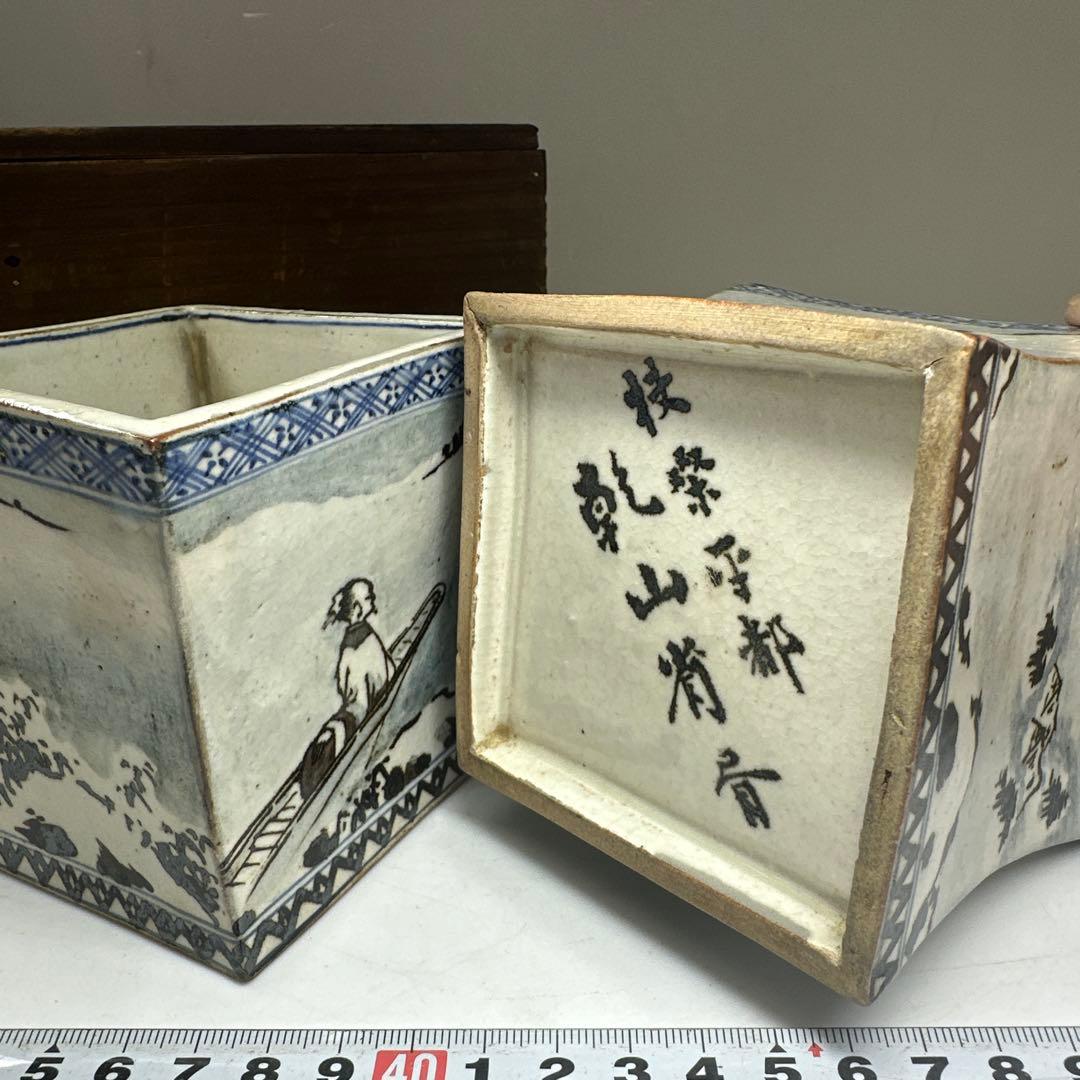 扶桒平都
乾山
5 6 7 8 9 40 1 2 3 4 5 6 7 8 9